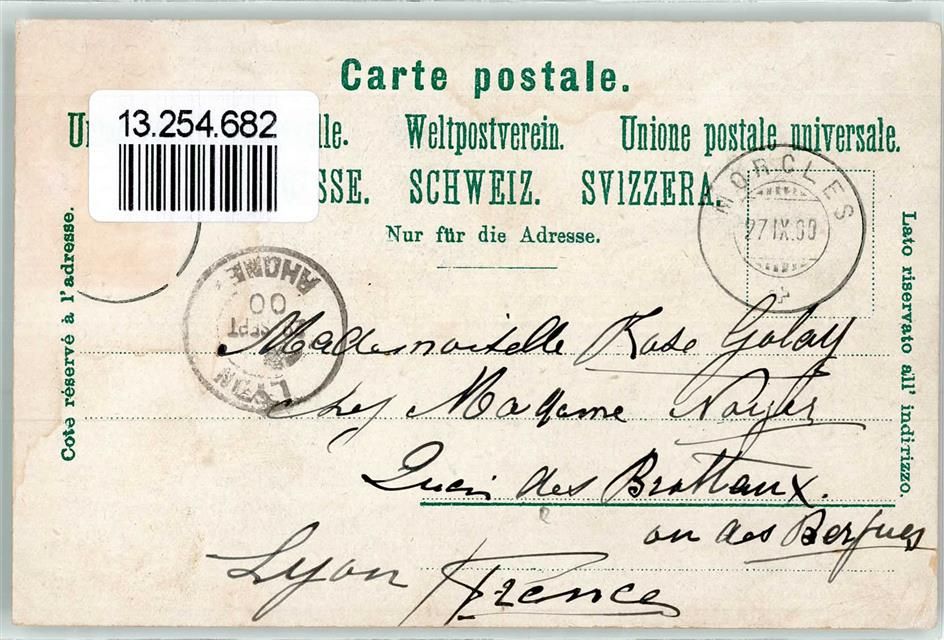 Carte postale.
13.254.682
lle. Weltpostverein. Unione postale universale.
SSE. SCHWEIZ. SVIZZERA.
Nur für die Adresse.
Côté réservé à l'adresse.
Lato riservato all' indirizzo.
MORCLES
27 IX.00
LYON
SEPT
00
RHONE
Mademoiselle Rose Golay
chez Madame Noyer
Quai des Brotteaux.
ou des Bergues
Lyon France